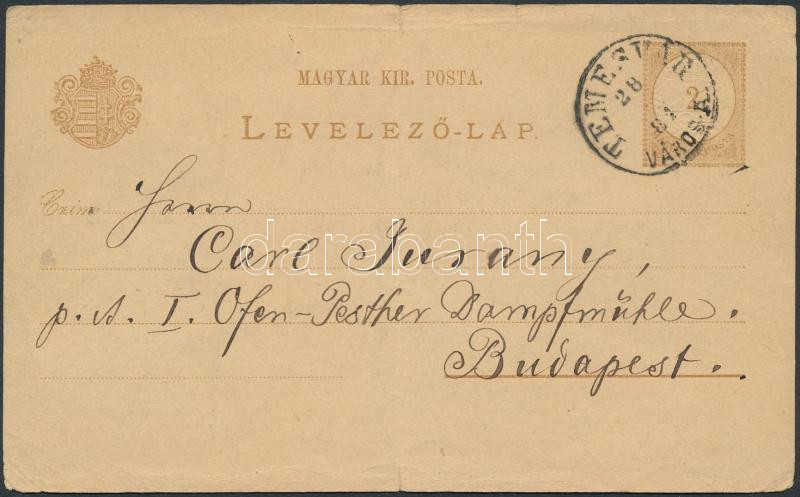 MAGYAR KIR. POSTA.
LEVELEZŐ-LAP.
TEMESVÁR
28
VÁROS
2
Czim:
Herrn
Carl Jurany,
p. A. I. Ofen-Pesther Dampfmühle.
Budapest.
darabanth